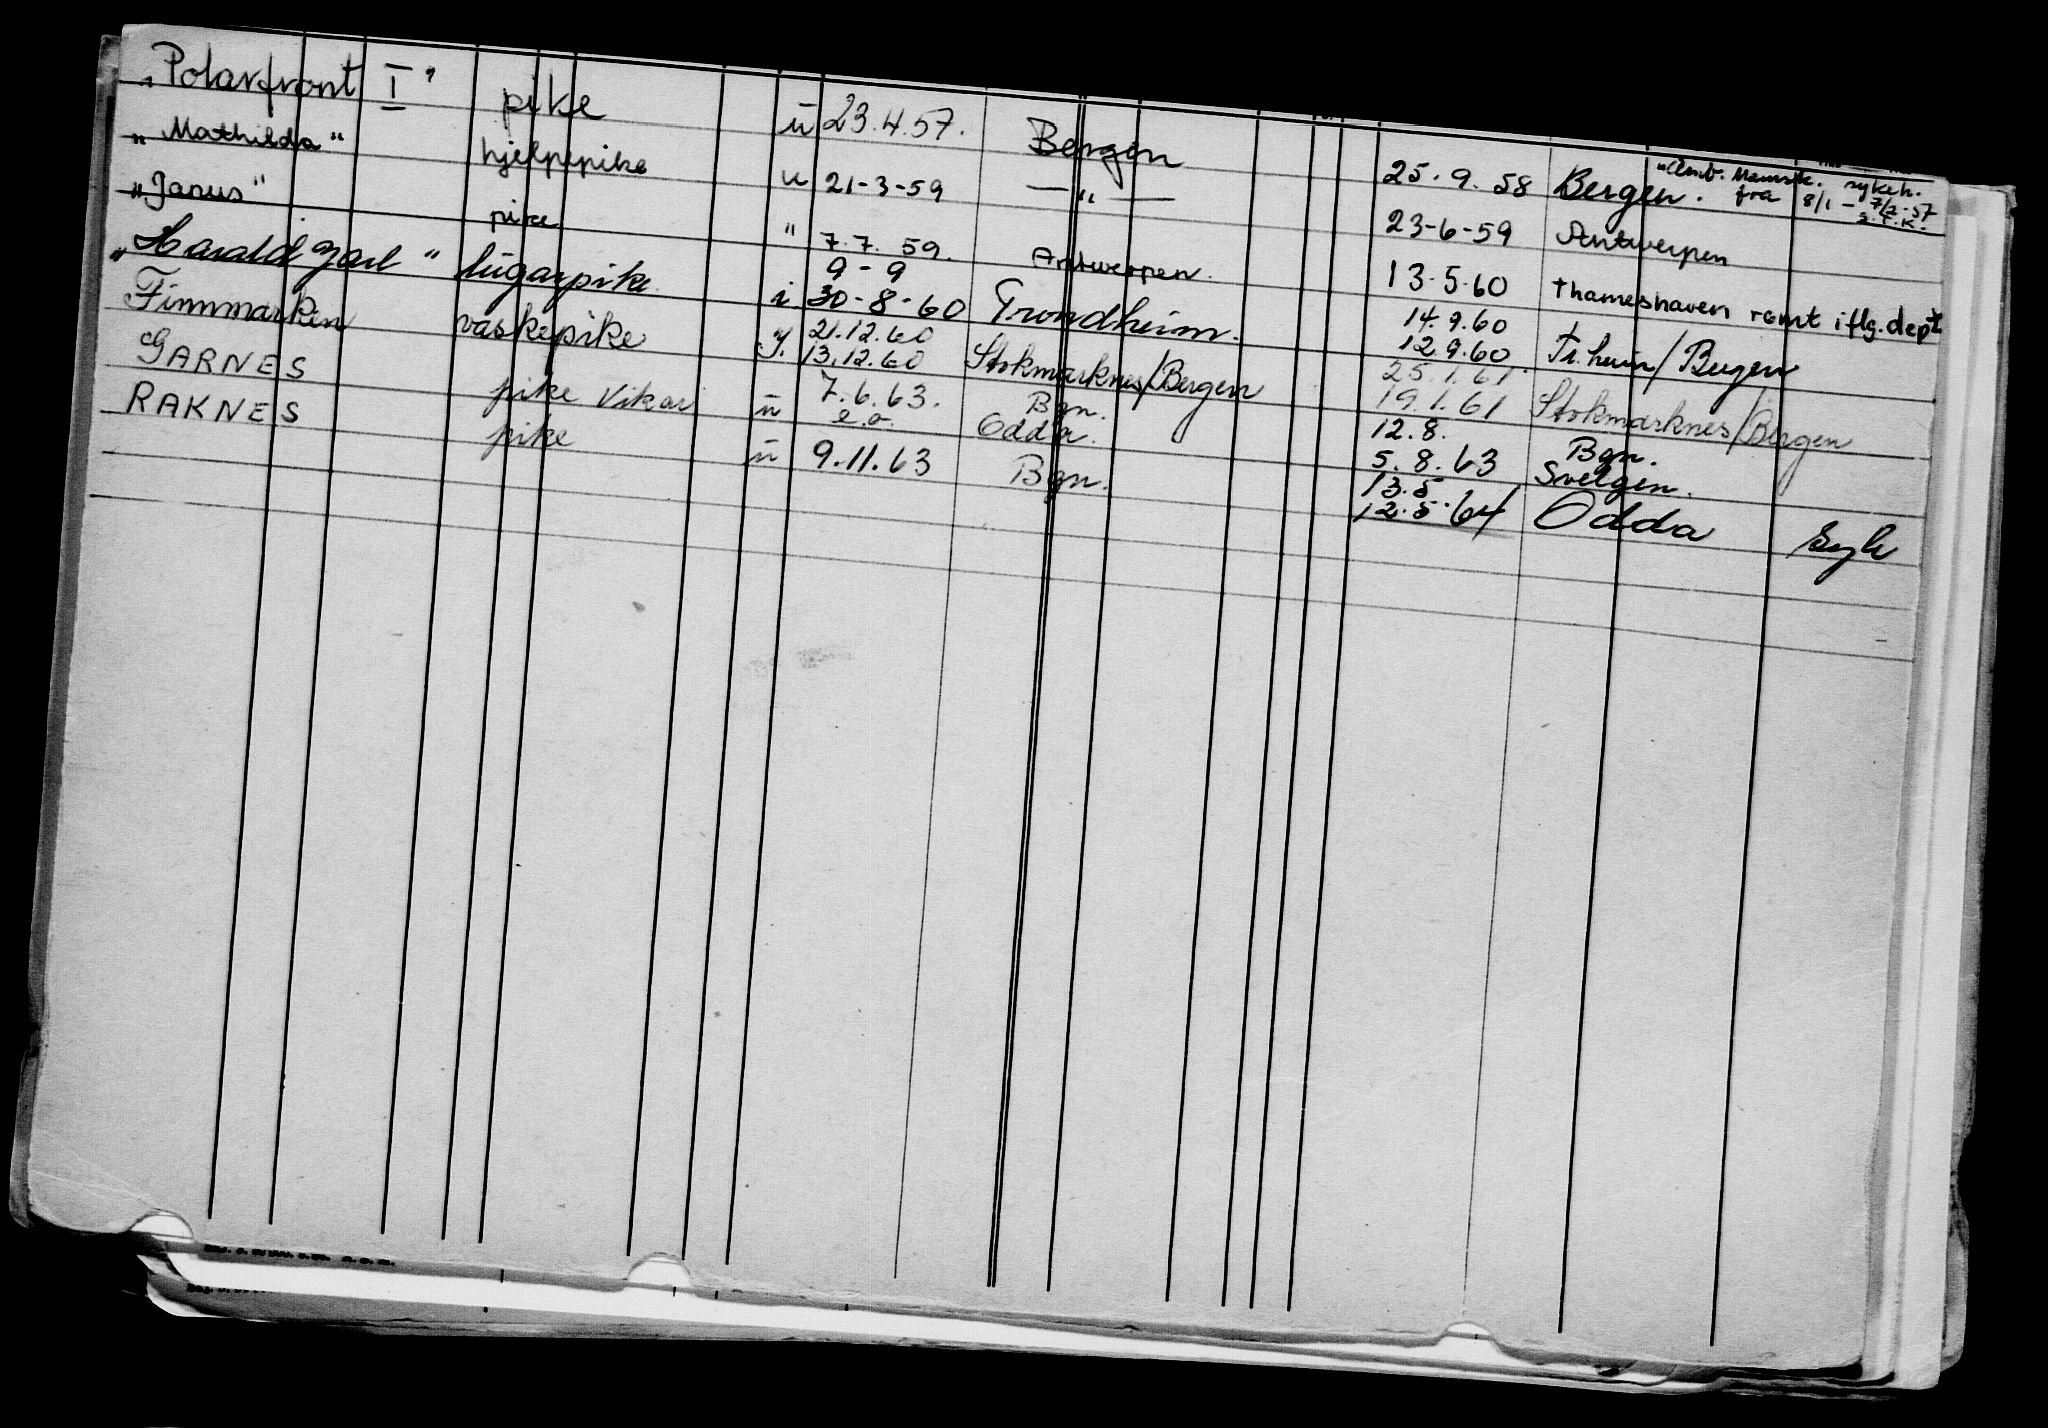 „Polarfront I" pike ū 23.4.57. Bergen 25.9.58 Bergen. fra 8/1 – 7/2-57
„Mathilda" hjelpepike u 21-3-59 —„— 23-6-59 Antwerpen
„Janus" pike " 7.7.59. Antwerpen. 13.5.60 Thameshaven rømt iflg. dept
„Harald Jarl" lugarpike i 9-9 30-8-60 Trondheim. 14.9.60 12.9.60 Tr.heim/Bergen
Finnmarken vaskepike i 21.12.60 13.12.60 Stokmarknes/Bergen 25.1.61 19.1.61 Stokmarknes/Bergen
GARNES pike vikar ū 7.6.63. e.o. Bgn. Odda. 12.8. 5.8.63 Bgn. Svelgen.
RAKNES pike ū 9.11.63 Bgn. 13.5 12.5.64 Odda Syk